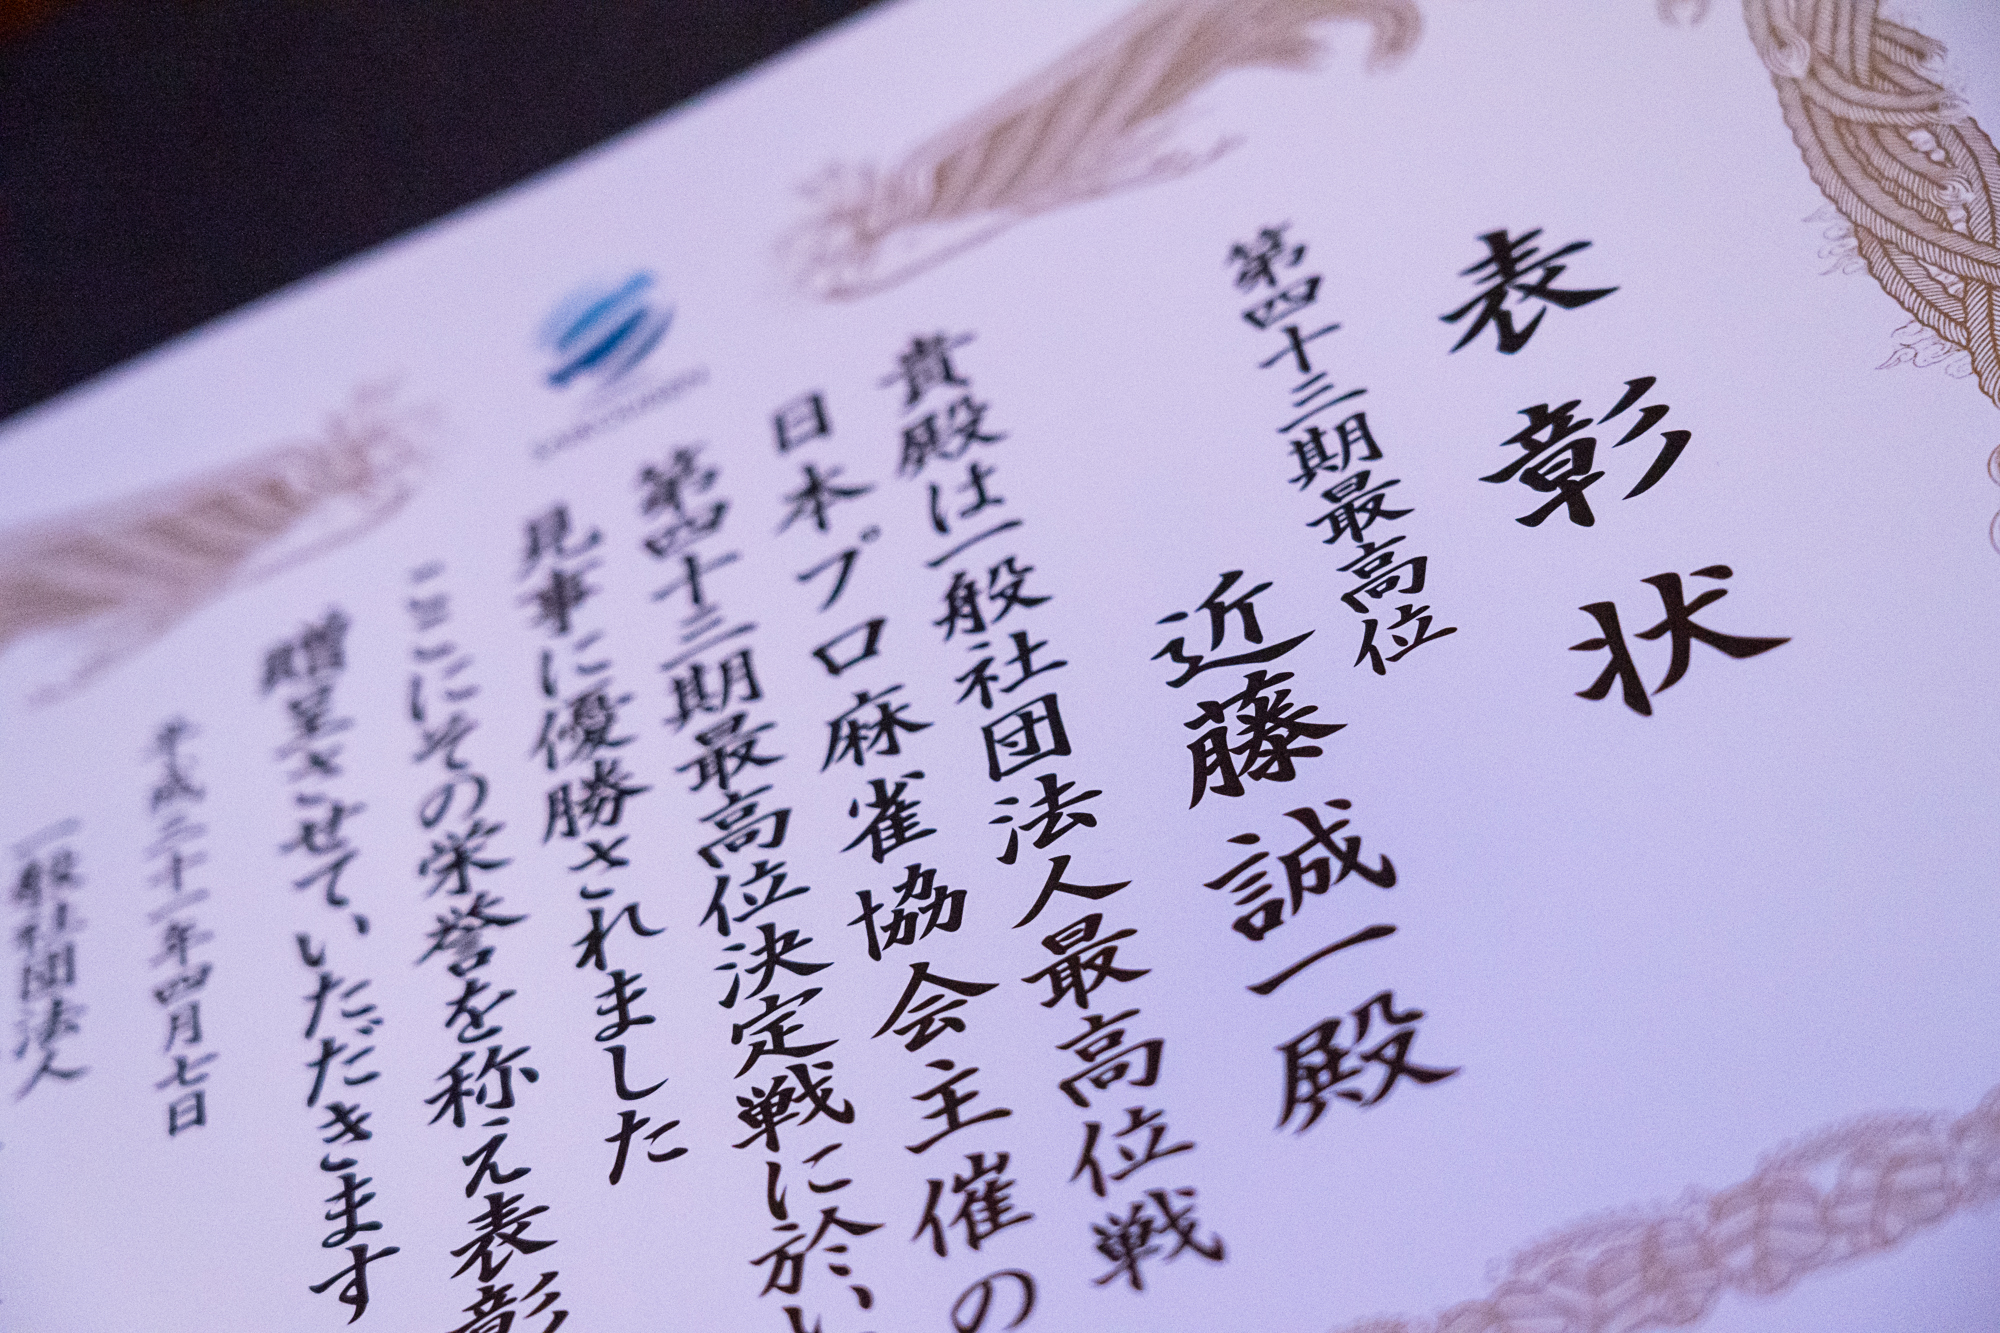 表彰状
第四十三期最高位
近藤誠一殿
貴殿は一般社団法人最高位戦
日本プロ麻雀協会主催の
第四十三期最高位決定戦に於い
見事に優勝されました
ここにその栄誉を称え表彰
贈呈させていただきます
平成三十一年四月七日
一般社団法人